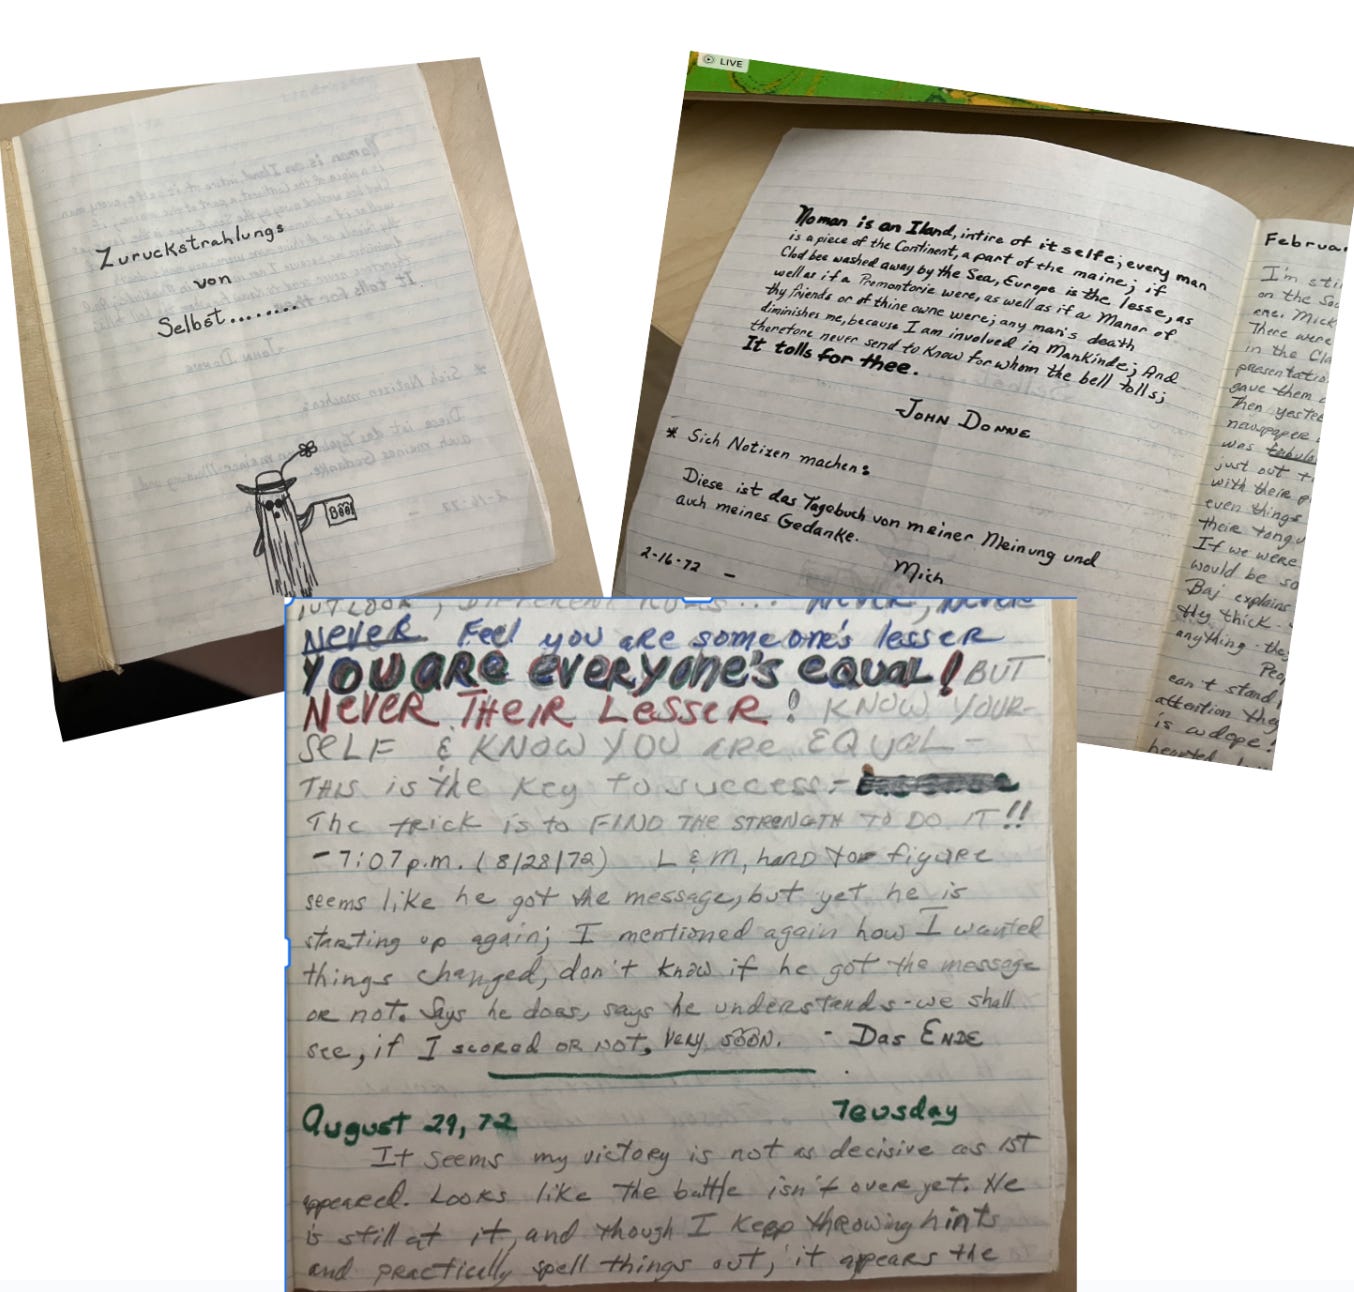 Zuruckstrahlungs
von
Selbst........
BOO!
LIVE
No man is an Iland, intire of it selfe; every man
is a piece of the Continent, a part of the maine; if
Clod bee washed away by the Sea, Europe is the lesse, as
well as if a Promontorie were, as well as if a Manor of
thy friends or of thine owne were; any man's death
diminishes me, because I am involved in Mankinde; And
therefore never send to know for whom the bell tolls;
It tolls for thee.
John Donne
* Sich Notizen machen:
Diese ist das Tagebuch von meiner Meinung und
auch meines Gedanke.
Mich
2-16-72 -
Februa
I'm sti
on the So
ene. Mick
There were
in the Cla
presentatio
gave them
Then yeste
newspaper
was fabulo
just out t
with their
even things
their tong
If we were
would be so
Baj explains
they thick -
anything - the
Peo
can't stand
attention they
is a dope!
hearted
OUTLOOK, DIFFERENT ... Never, Never
Never Feel you are someone's lesser
YOU ARE everyone's equal! BUT
Never Their Lesser! KNOW YOUR-
SELF & KNOW YOU are EQUAL -
THIS is the key to success. -
The trick is to FIND THE STRENGTH TO DO IT!!
- 7:07 p.m. (8/28/72) L & M, hard to figure
seems like he got the message, but yet he is
starting up again; I mentioned again how I wanted
things changed, don't know if he got the message
or not. Says he does, says he understands - we shall
see, if I scored or not, very soon. - Das Ende
August 29, 72 Teusday
It seems my victory is not as decisive as 1st
appeared. Looks like the battle isn't over yet. He
is still at it, and though I keep throwing hints
and practically spell things out, it appears the